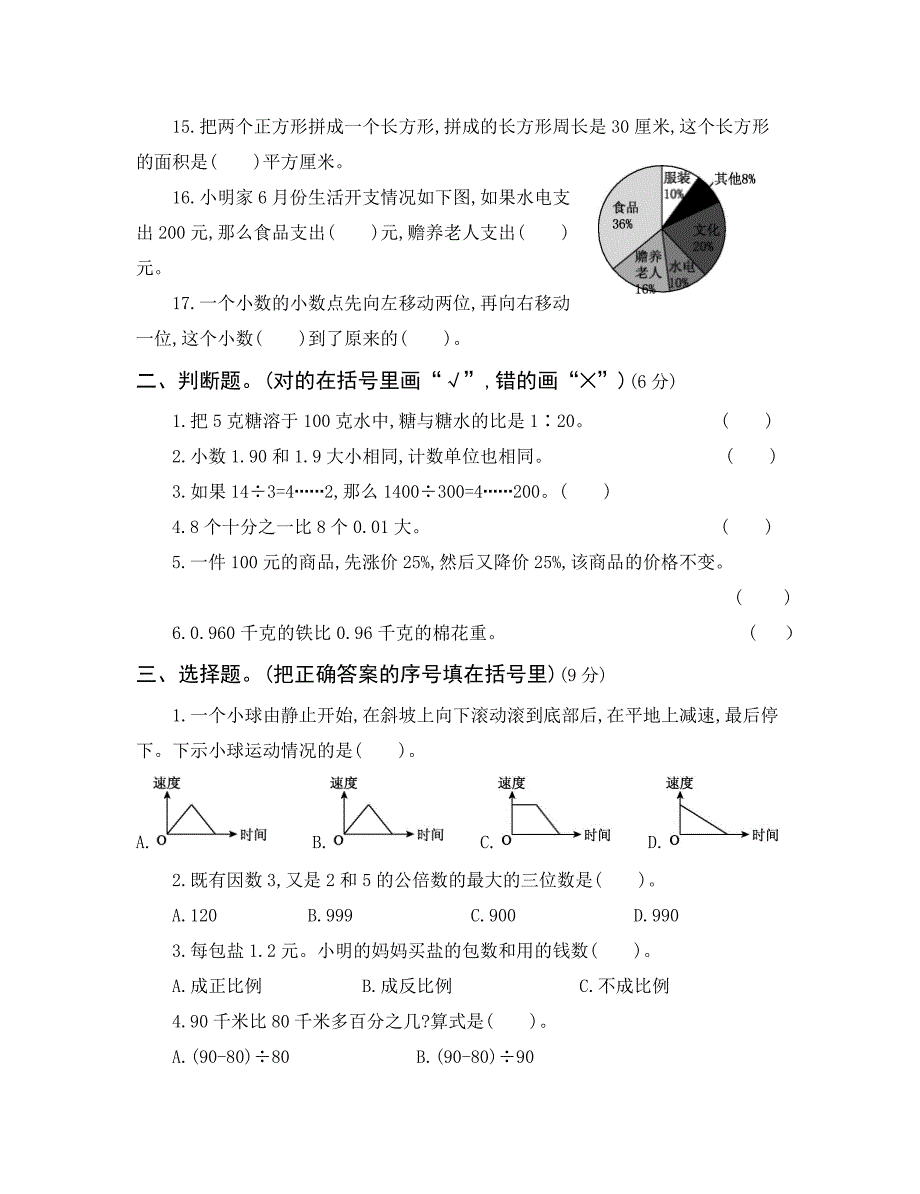 15.把两个正方形拼成一个长方形,拼成的长方形周长是30厘米,这个长方形
的面积是(　　)平方厘米。
16.小明家6月份生活开支情况如下图,如果水电支
出200元,那么食品支出(　　)元,赡养老人支出(　　)
元。
服装
10%
其他8%
食品
36%
文化
20%
赡养
老人
16%
水电
10%
17.一个小数的小数点先向左移动两位,再向右移动
一位,这个小数(　　)到了原来的(　　)。
二、判断题。(对的在括号里画“√”,错的画“✕”)(6分)
1.把5克糖溶于100克水中,糖与糖水的比是1∶20。(　　)
2.小数1.90和1.9大小相同,计数单位也相同。(　　)
3.如果14÷3=4……2,那么1400÷300=4……200。(　　)
4.8个十分之一比8个0.01大。(　　)
5.一件100元的商品,先涨价25%,然后又降价25%,该商品的价格不变。
(　　)
6.0.960千克的铁比0.96千克的棉花重。(　　)
三、选择题。(把正确答案的序号填在括号里)(9分)
1.一个小球由静止开始,在斜坡上向下滚动滚到底部后,在平地上减速,最后停
下。下示小球运动情况的是(　　)。
速度 速度 速度 速度
A. O 时间 B. O 时间 C. O 时间 D. O 时间
2.既有因数3,又是2和5的公倍数的最大的三位数是(　　)。
A.120 B.999 C.900 D.990
3.每包盐1.2元。小明的妈妈买盐的包数和用的钱数(　　)。
A.成正比例 B.成反比例 C.不成比例
4.90千米比80千米多百分之几?算式是(　　)。
A.(90-80)÷80 B.(90-80)÷90